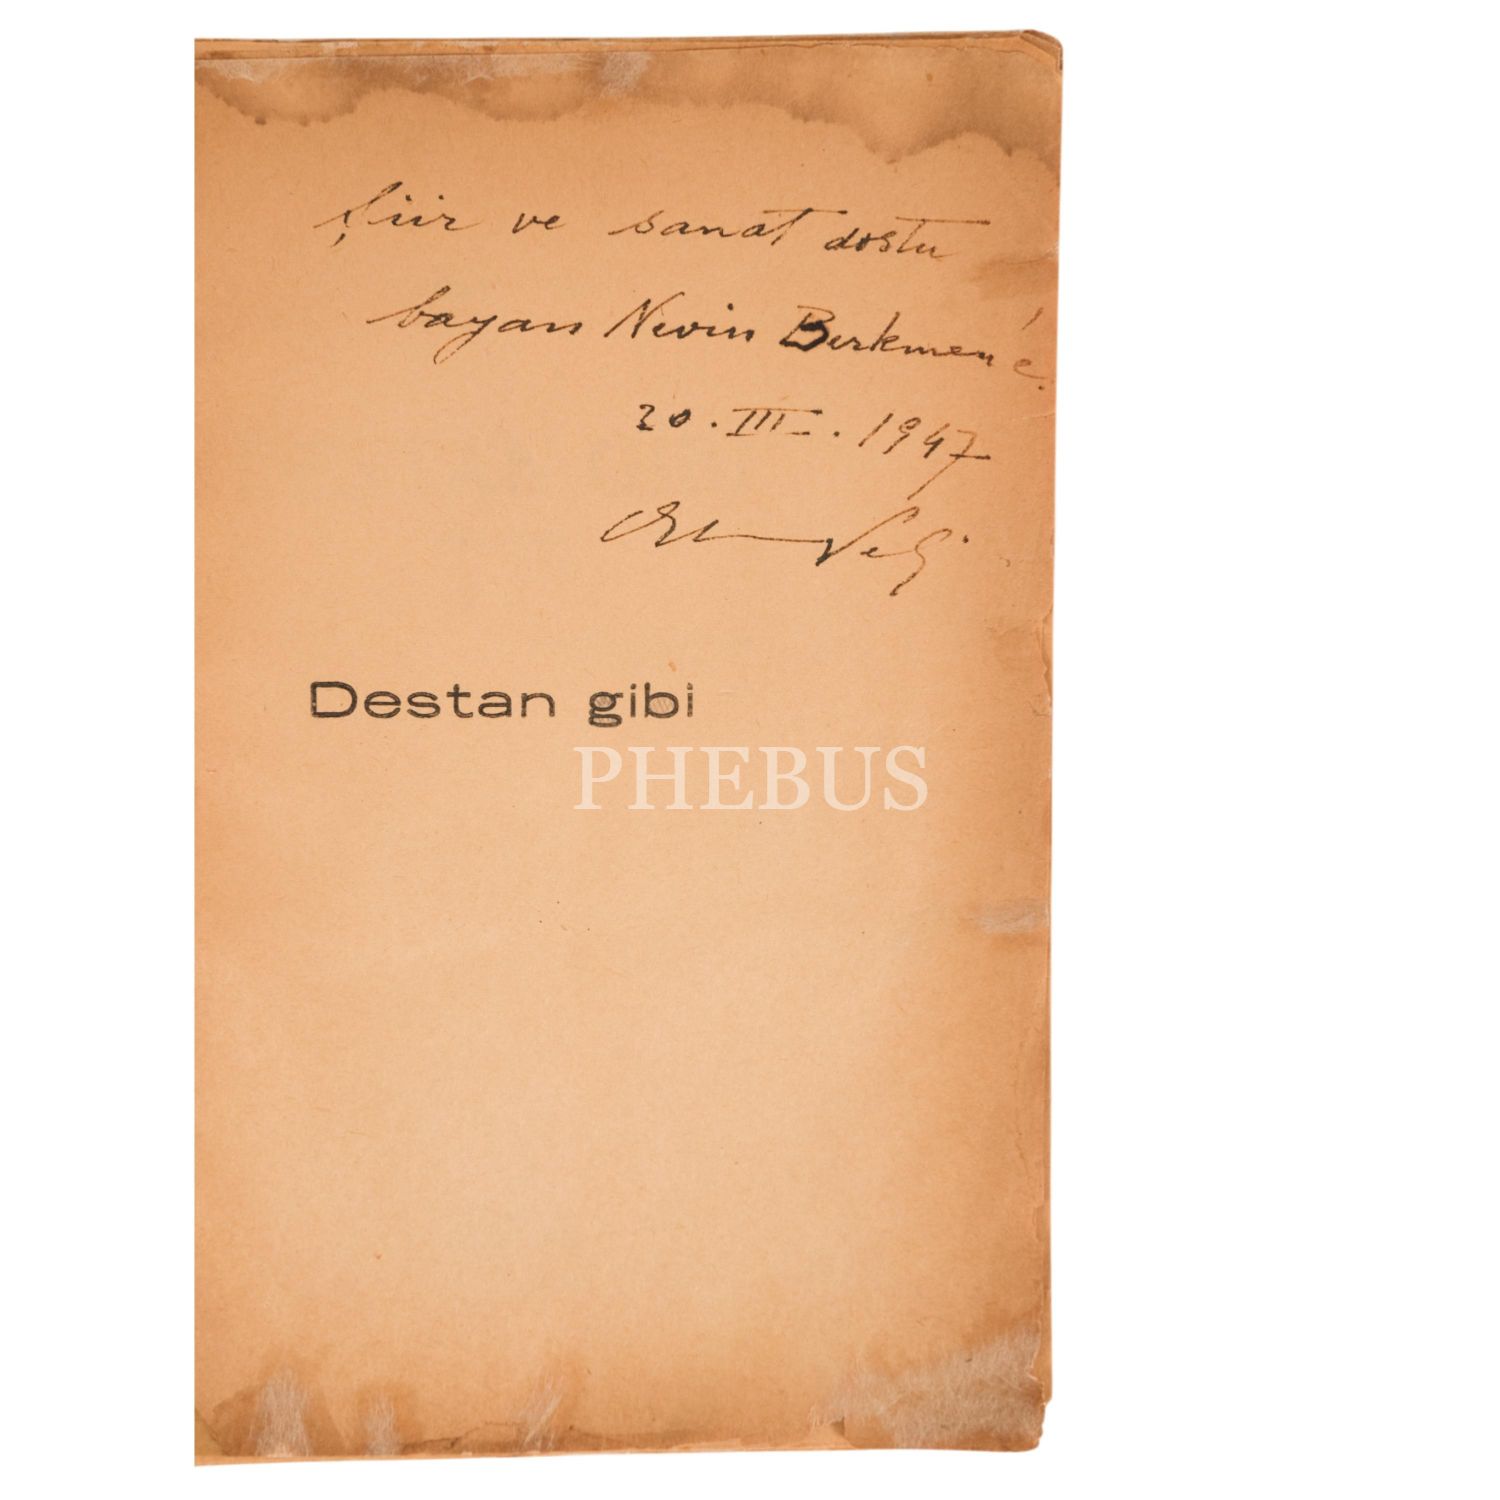 Şiir ve sanat dostu
bayan Nevin Berkmen'e.
20.III.1947
Orhan Veli
Destan gibi
PHEBUS